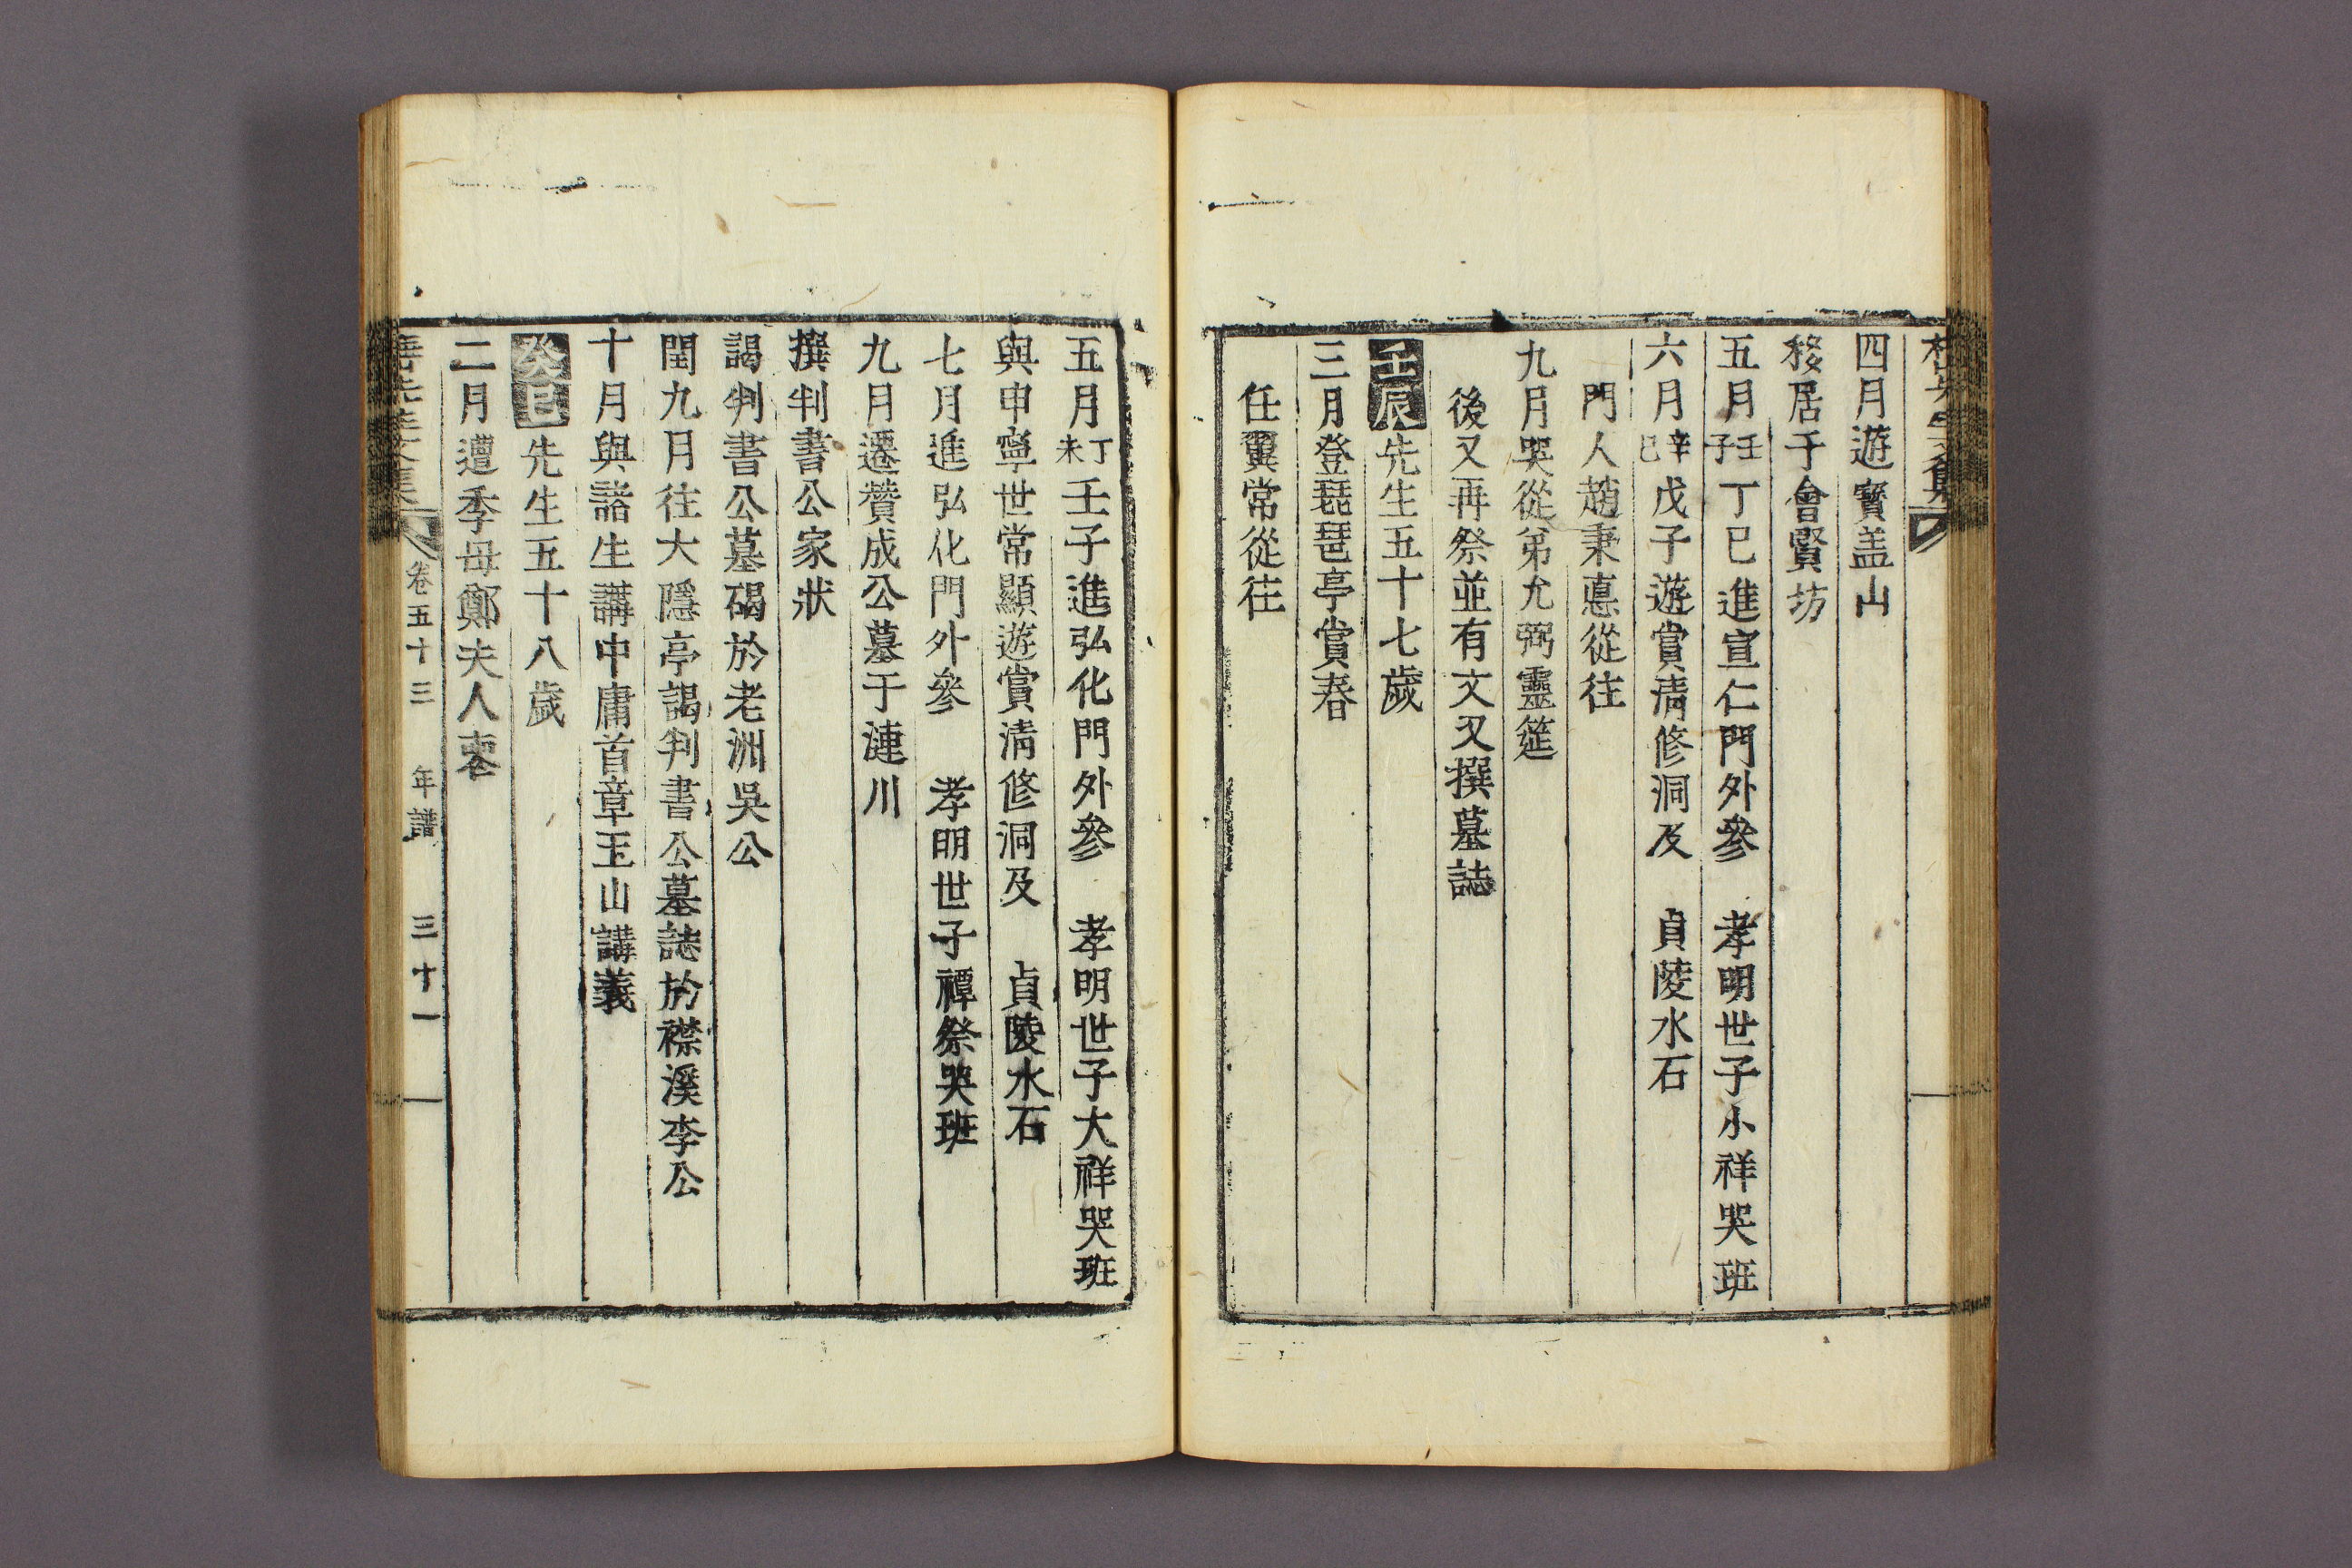 四月遊寶盖山
移居于會賢坊
五月壬子丁巳進宣仁門外參　孝明世子小祥哭班
六月辛巳戊子遊賞淸修洞及　貞陵水石
門人趙秉悳從往
九月哭從弟允弼靈筵
後又再祭並有文又撰墓誌
壬辰先生五十七歲
三月登琵琶亭賞春
任翼常從往
五月丁未壬子進弘化門外參　孝明世子大祥哭班
與申寧世常顯遊賞淸修洞及　貞陵水石
七月進弘化門外參　孝明世子禫祭哭班
九月遷贊成公墓于漣川
撰判書公家狀
謁判書公墓碣於老洲吳公
閏九月往大隱亭謁判書公墓誌於襟溪李公
十月與諸生講中庸首章玉山講義
癸巳先生五十八歲
二月遭季母鄭夫人喪
卷五十三　年譜　三十一